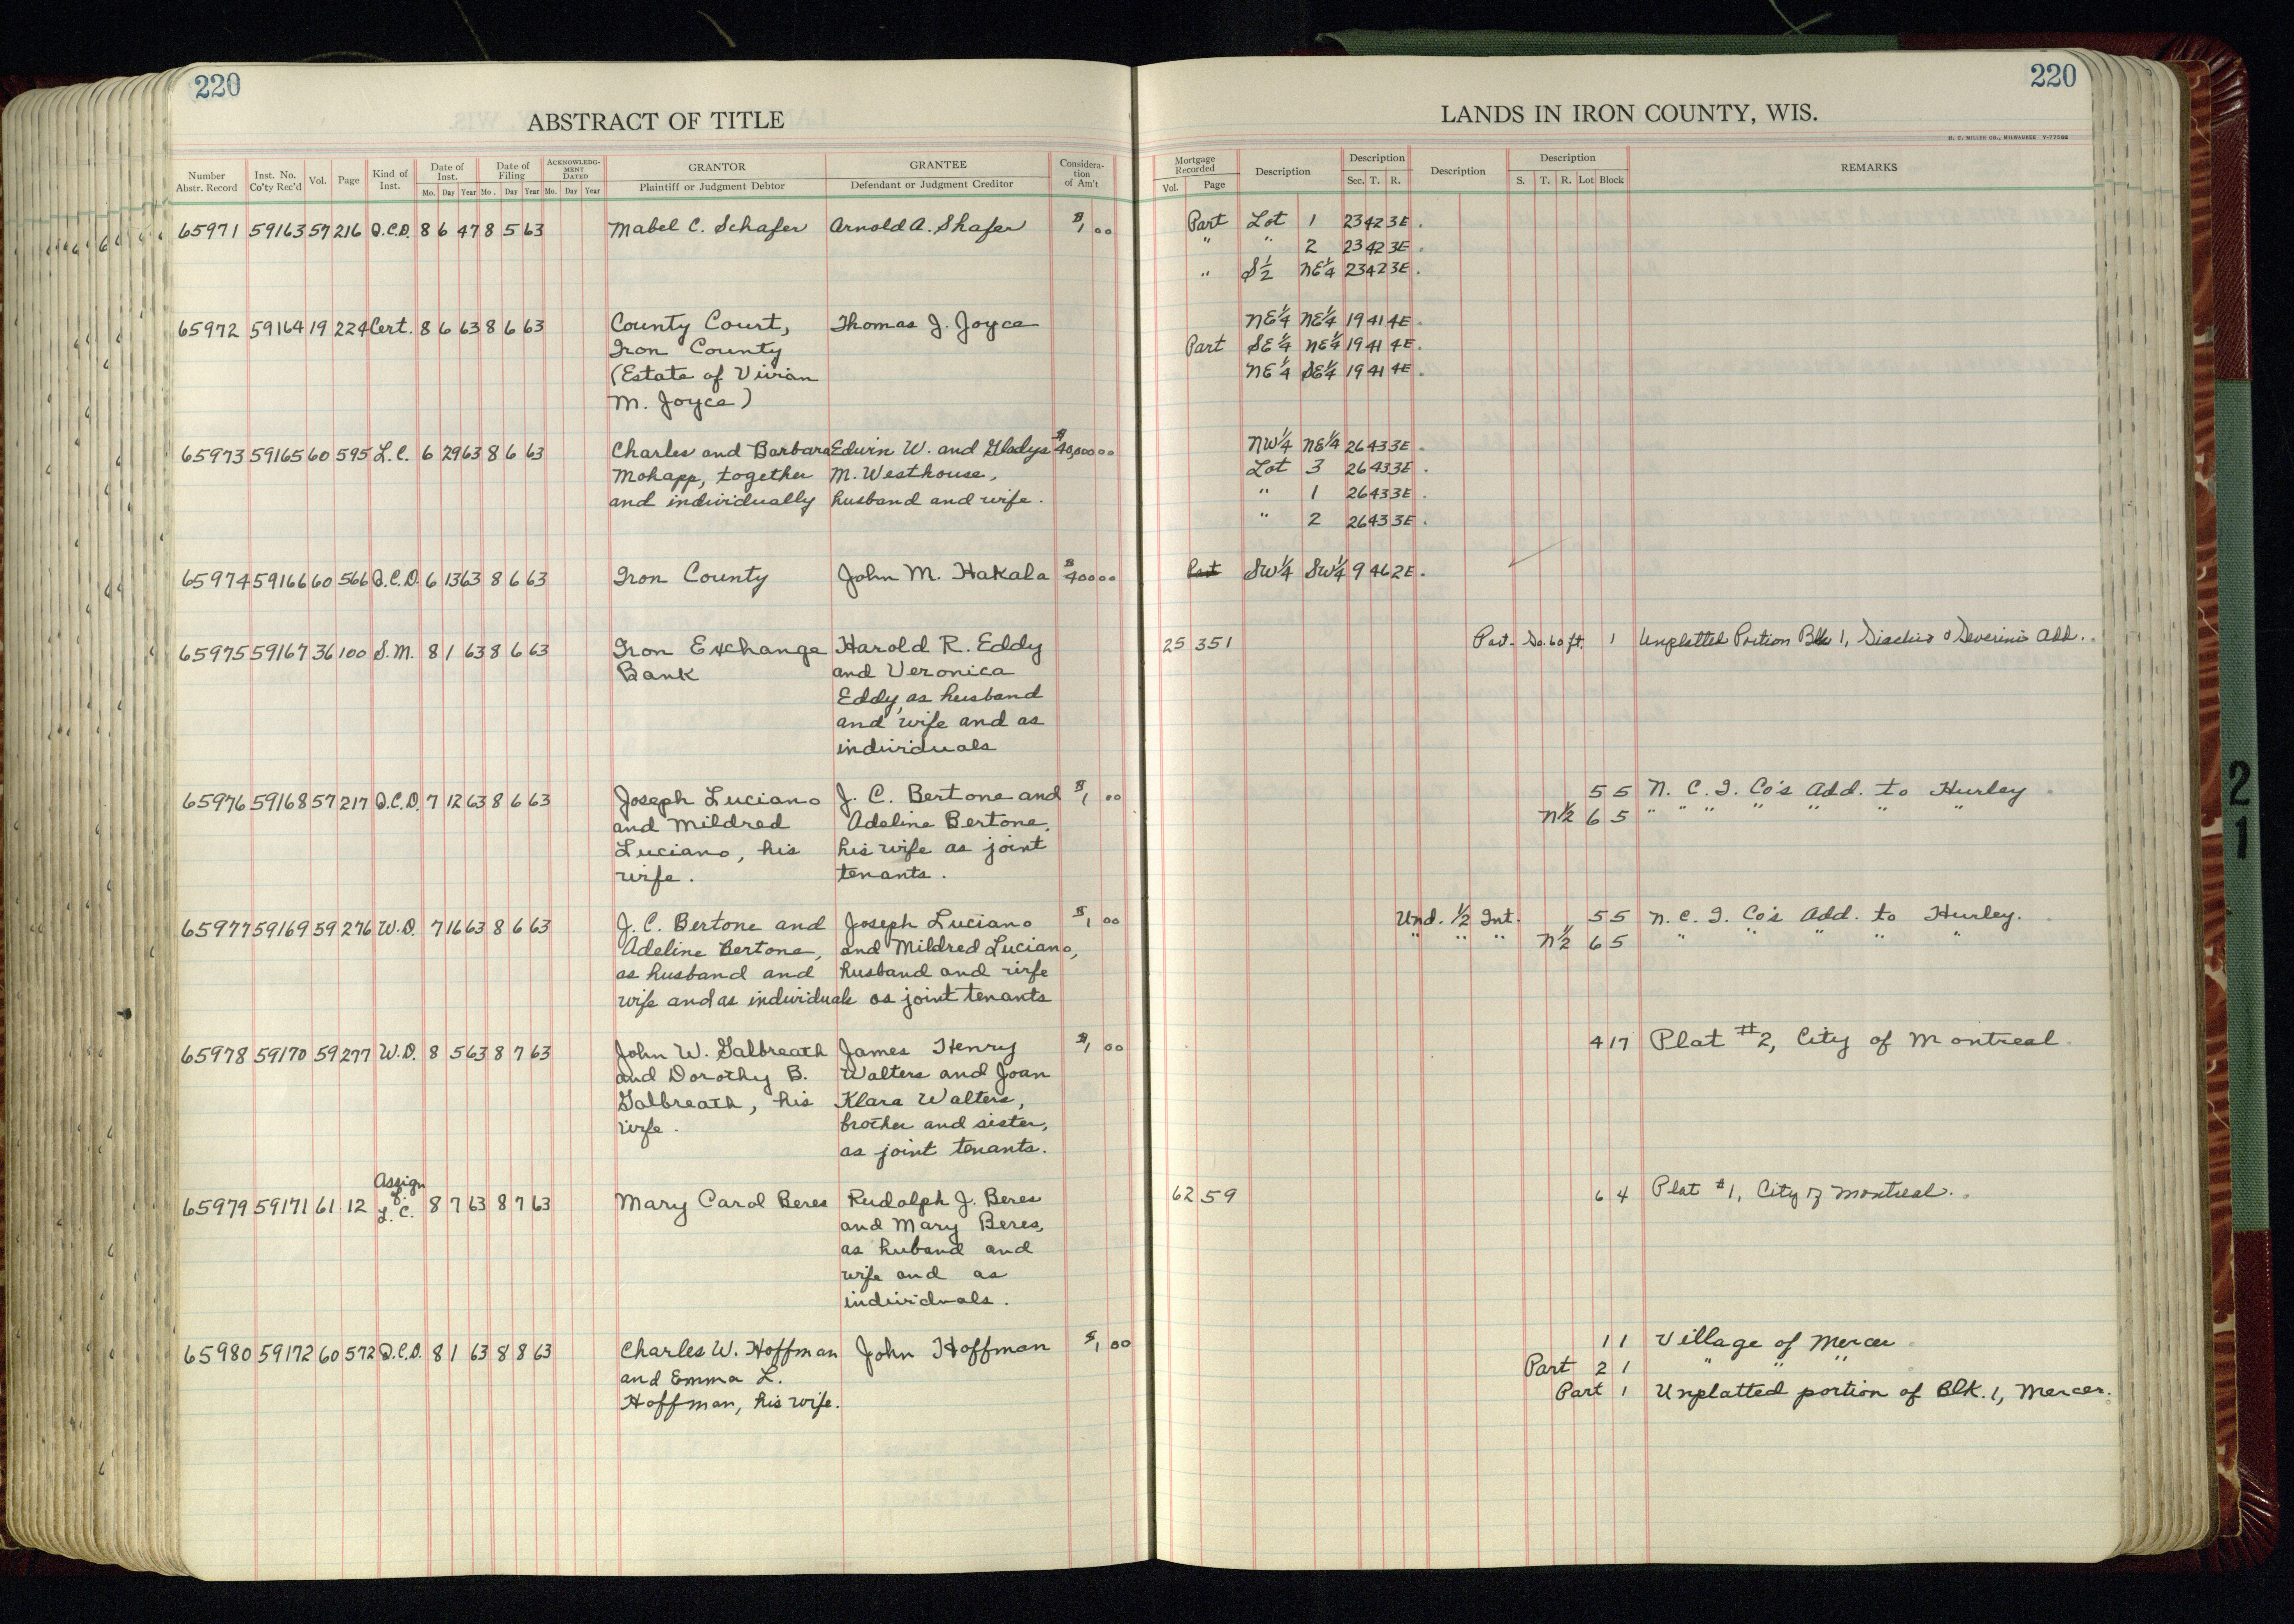 220
ABSTRACT OF TITLE
Number Abstr. Record Inst. No. Co'ty Rec'd Vol. Page Kind of Inst. Date of Inst. Mo. Day Year Date of Filing Mo. Day Year ACKNOWLEDGMENT DATED Mo. Day Year GRANTOR Plaintiff or Judgment Debtor GRANTEE Defendant or Judgment Creditor Consideration of Am't
65971 59163 57 216 Q.C.D. 8 6 47 8 5 63 Mabel C. Schafer Arnold A. Shafer $1 00
65972 59164 19 224 Cert. 8 6 63 8 6 63 County Court, Thomas J. Joyce
Iron County
(Estate of Vivian
M. Joyce)
65973 59165 60 595 L.C. 6 29 63 8 6 63 Charles and Barbara Edwin W. and Gladys $40,000 00
Mohapp, together M. Westhouse,
and individually husband and wife.
65974 59166 60 566 Q.C.D. 6 13 63 8 6 63 Iron County John M. Hakala $400 00
65975 59167 36 100 S.M. 8 1 63 8 6 63 Iron Exchange Harold R. Eddy
Bank and Veronica
Eddy, as husband
and wife and as
individuals
65976 59168 57 217 Q.C.D. 7 12 63 8 6 63 Joseph Luciano J. C. Bertone and $1 00
and Mildred Adeline Bertone,
Luciano, his his wife as joint
wife. tenants.
65977 59169 59 276 W.D. 7 16 63 8 6 63 J. C. Bertone and Joseph Luciano $1 00
Adeline Bertone, and Mildred Luciano,
as husband and husband and wife
wife and as individuals as joint tenants
65978 59170 59 277 W.D. 8 5 63 8 7 63 John W. Galbreath James Henry $1 00
and Dorothy B. Walters and Joan
Galbreath, his Klara Walters,
wife. brother and sister,
as joint tenants.
Assign
65979 59171 61 12 L.C. 8 7 63 8 7 63 Mary Carol Beres Rudolph J. Beres
and Mary Beres,
as huband and
wife and as
individuals.
65980 59172 60 572 Q.C.D. 8 1 63 8 8 63 Charles W. Hoffman John Hoffman $1 00
and Emma L.
Hoffman, his wife.
220
LANDS IN IRON COUNTY, WIS.
H. C. MILLER CO., MILWAUKEE
Mortgage Recorded Vol. Page Description Description Sec. T. R. Description Description S. T. R. Lot Block REMARKS
Part Lot 1 23 42 3E.
" " 2 23 42 3E.
" S½ NE¼ 23 42 3E.
NE¼ NE¼ 19 41 4E.
Part SE¼ NE¼ 19 41 4E.
NE¼ SE¼ 19 41 4E.
NW¼ NE¼ 26 43 3E.
Lot 3 26 43 3E.
" 1 26 43 3E.
" 2 26 43 3E.
Part SW¼ SW¼ 9 46 2E.
25 351 Part - So. 60 ft. 1 Unplatted Portion Blk 1, & Severini's Add.
5 5 N. C. I. Co's Add. to Hurley
N½ 6 5 " " " " " " "
Und. ½ Int. 5 5 N. C. I. Co's Add. to Hurley.
" " " N½ 6 5 " " " " "
4 17 Plat #2, City of Montreal
62 59 6 4 Plat #1, City of Montreal.
1 1 Village of Mercer
Part 2 1 " " "
Part 1 Unplatted portion of Blk. 1, Mercer.
21